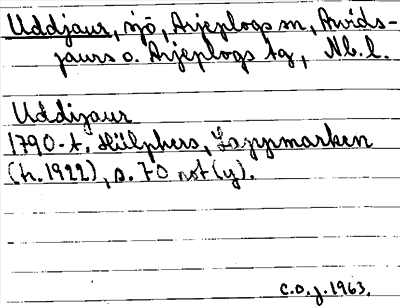 Uddjaur, sjö, Arjeplogs sn, Arvids-
jaurs o. Arjeplogs tg, Nb.l.
Uddijaur
1790-t. Hülphers, Lappmarken
(tr. 1922), s. 70 not (y).
C.O.J. 1963.